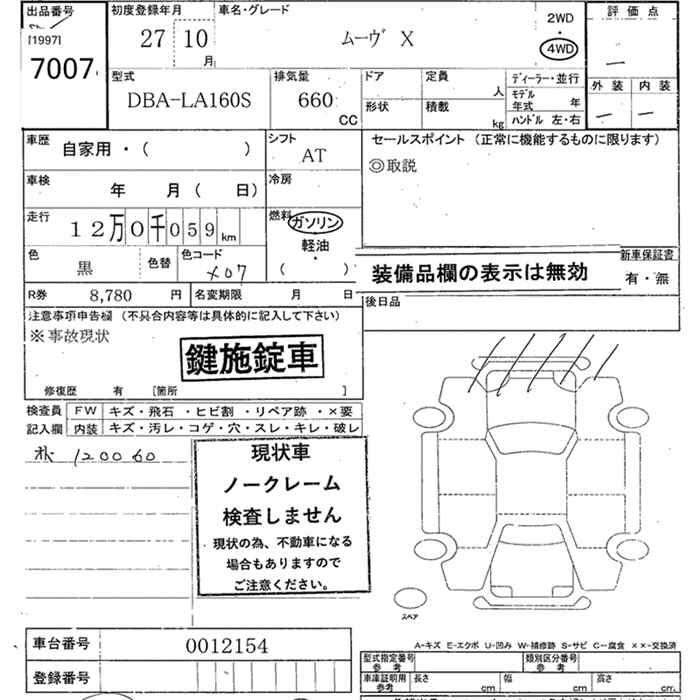 出品番号
[1997]
7007
初度登録年月
27 10
月
車名・グレード
ムーヴ X
2WD
4WD
評価点
外装 内装
型式
DBA-LA160S
排気量
660 CC
ドア
定員
人
形状
積載
kg
ディーラー・並行
モデル年式 年
ハンドル 左・右
車歴
自家用・( )
シフト
AT
セールスポイント (正常に機能するものに限ります)
◎取説
車検
年 月( 日)
冷房
走行
12万0千059 km
燃料
ガソリン
軽油
( )
色
黒
色替
色コード
X07
装備品欄の表示は無効
新車保証書
有・無
R券 8,780 円
名変期限 月 日
後日品
注意事項申告欄 (不具合内容等は具体的に記入して下さい)
※事故現状
鍵施錠車
修復歴 有 [箇所 ]
検査員記入欄
FW キズ・飛石・ヒビ割・リペア跡・×要
内装 キズ・汚レ・コゲ・穴・スレ・キレ・破レ
120060
現状車
ノークレーム
検査しません
現状の為、不動車になる
場合もありますので
ご注意ください。
スペア
車台番号 0012154
登録番号
A-キズ E-エクボ U-凹み W-補修跡 S-サビ C-腐食 ××-交換済
型式指定番号参考
類別区分番号参考
車庫証明用参考
長さ cm
幅 cm
高さ cm